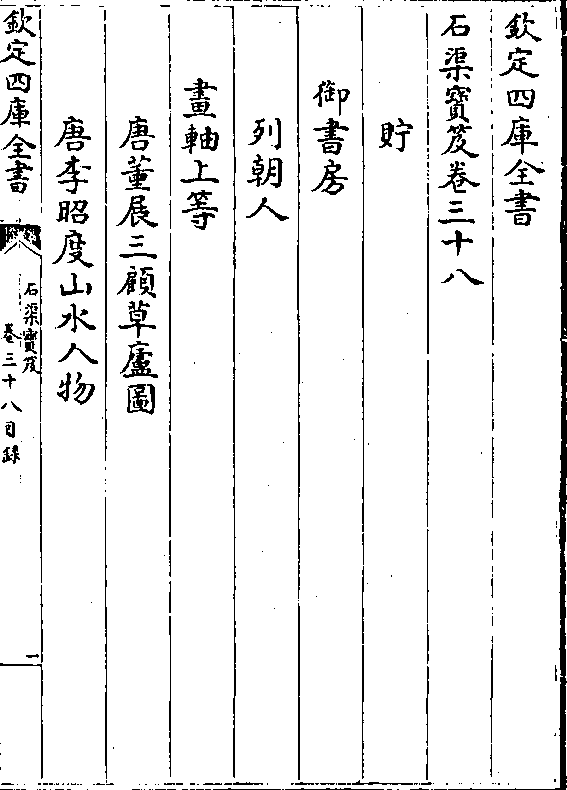 欽定四庫全書
石渠寳笈卷三十八
貯
御書房
列朝人
畫軸上等
唐董展三顧草廬圖
唐李昭度山水人物
欽定四庫全書
石渠寳笈
卷三十八目錄
一